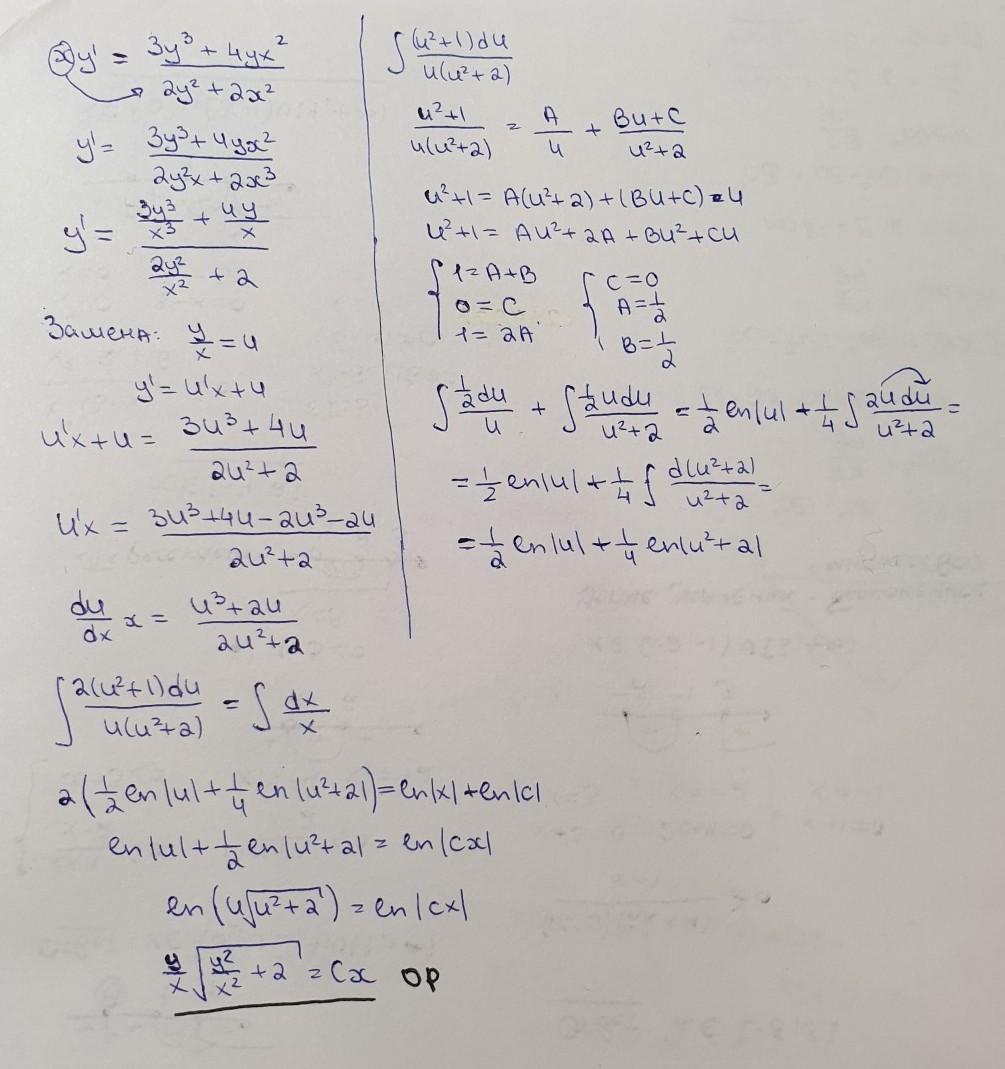 xy' = (3y³ + 4yx²)/(2y² + 2x²)
y' = (3y³ + 4yx²)/(2y²x + 2x³)
y' = (3y³/x³ + 4y/x)/(2y²/x² + 2)
Замена: y/x = u
y' = u'x + u
u'x + u = (3u³ + 4u)/(2u² + 2)
u'x = (3u³ + 4u - 2u³ - 2u)/(2u² + 2)
du/dx x = (u³ + 2u)/(2u² + 2)
∫ 2(u² + 1)du/(u(u² + 2)) = ∫ dx/x
2(1/2 ln|u| + 1/4 ln|u² + 2|) = ln|x| + ln|c|
ln|u| + 1/2 ln|u² + 2| = ln|cx|
ln(u√(u² + 2)) = ln|cx|
y/x √(y²/x² + 2) = Cx ОР
∫ (u² + 1)du/(u(u² + 2))
(u² + 1)/(u(u² + 2)) = A/u + (Bu + C)/(u² + 2)
u² + 1 = A(u² + 2) + (Bu + C) u
u² + 1 = Au² + 2A + Bu² + Cu
{ 1 = A + B { C = 0
0 = C A = 1/2
1 = 2A B = 1/2
∫ 1/2 du/u + ∫ 1/2 u du/(u² + 2) = 1/2 ln|u| + 1/4 ∫ 2u du/(u² + 2) =
= 1/2 ln|u| + 1/4 ∫ d(u² + 2)/(u² + 2) =
= 1/2 ln|u| + 1/4 ln|u² + 2|